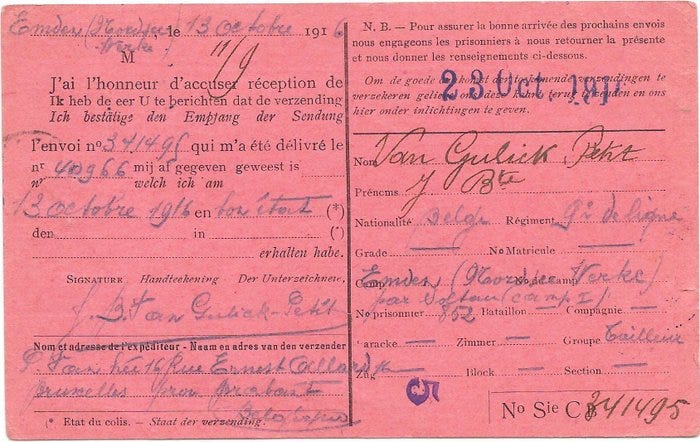 Emden (Nordsee Werke) le 13 octobre 1916
M
11/9
J'ai l'honneur d'accuser réception de
Ik heb de eer U te berichten dat de verzending
Ich bestätige den Empfang der Sendung
l'envoi nº 341495 qui m'a été délivré le
nr 40966 mij af gegeven geweest is
nr welch ich am
13 octobre 1916 en bon état (*)
den in (*)
erhalten habe.
SIGNATURE Handteekening Der Unterzeichnete,
J. B. Van Gulick-Petit
Nom et adresse de l'expéditeur - Naam en adres van den verzender
16 Rue Ernest Allard
Bruxelles prov brabant
Belgique
(* Etat du colis. - Staat der verzending.
N. B. — Pour assurer la bonne arrivée des prochains envois
nous engageons les prisonniers à nous retourner la présente
et nous donner les renseignements ci-dessous.
Om de goede aankomst der toekomende verzendingen te
verzekeren gelieve ons deze kaart terug te zenden en ons
hier onder inlichtingen te geven.
23 Oct.
Nom Van Gulick, Petit
Prénoms J Bte
Nationalité Belge Régiment 9e de ligne
Grade — No Matricule —
Emden (Nordsee Werke)
par Soltau (camp I)
No prisonnier 852 Bataillon — Compagnie —
Baracke — Zimmer — Groupe Tailleur
Zug — Block — Section —
5
No Sie CB 341495